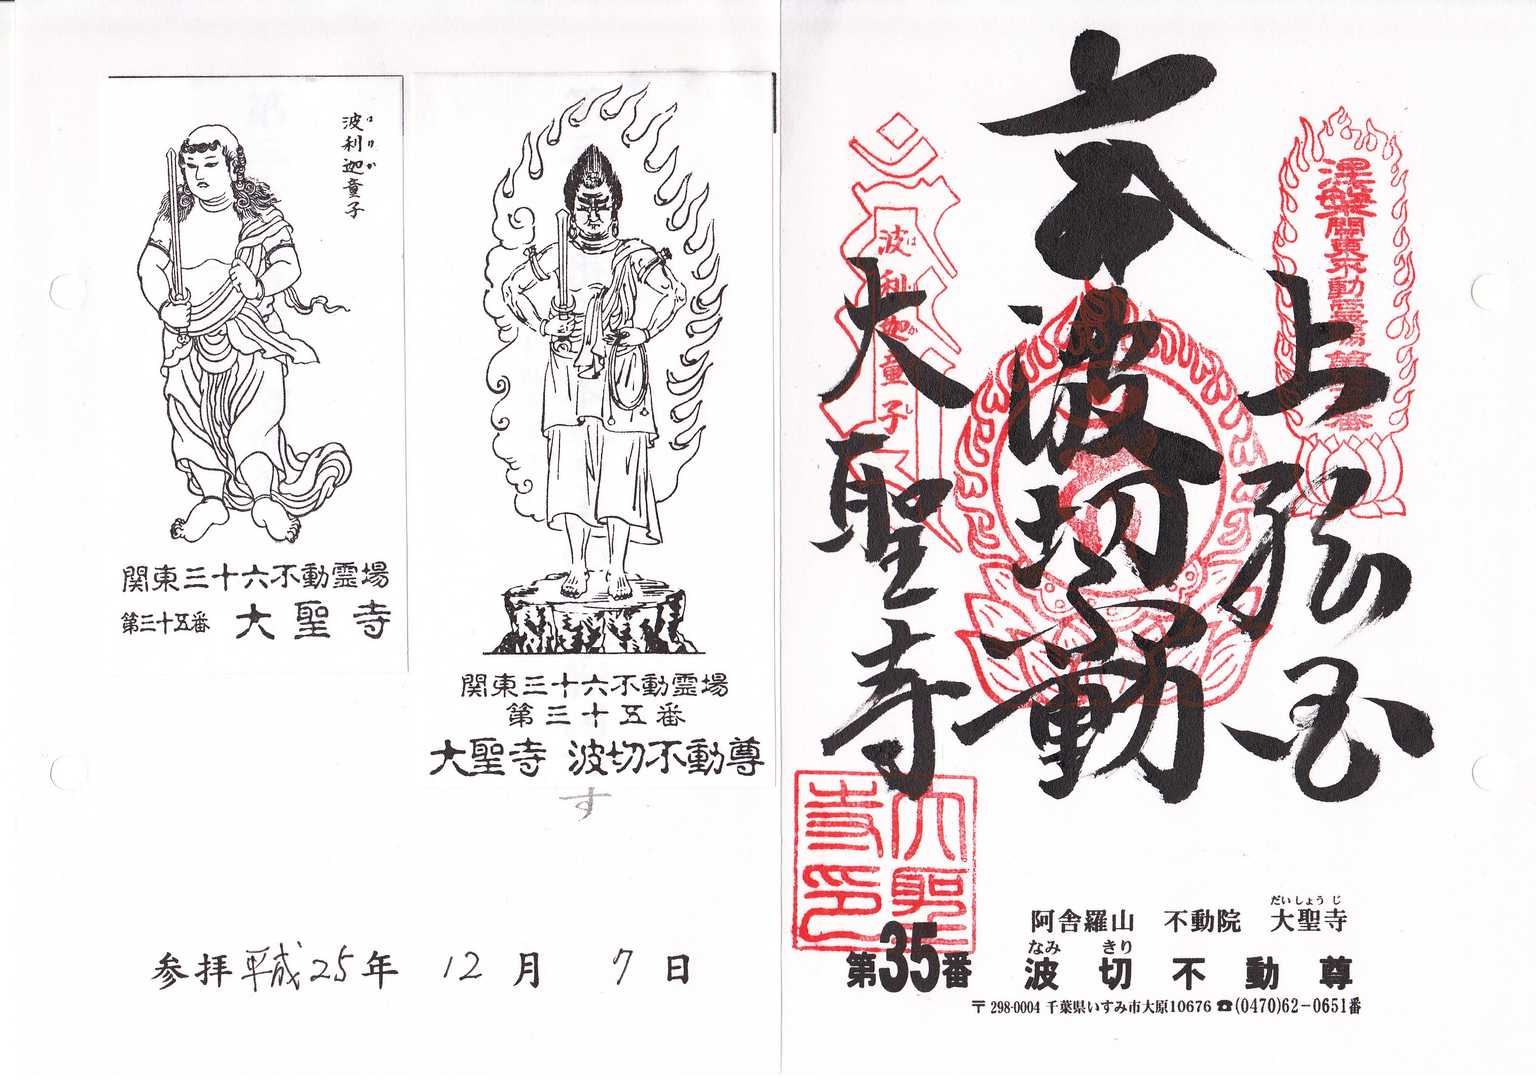 波利迦童子
はりか
関東三十六不動霊場
第三十五番 大聖寺
関東三十六不動霊場
第三十五番
大聖寺 波切不動尊
す
参拝平成25年 12月 7日
涅槃関東不動霊場第
番
波利迦童子
は か し
波切
動
大聖寺
大聖
寺印
だいしょうじ
阿舎羅山 不動院 大聖寺
なみ きり
第35番 波切不動尊
〒298-0004 千葉県いすみ市大原10676 ☎(0470)62-0651番